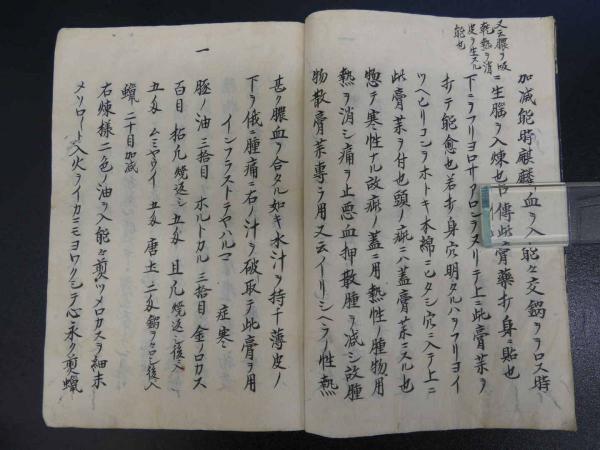 又云膿ヲ吸
乾熱ヲ消
皮ヲ生スル
能也
加減能時麒麟血ヲ入能々交鍋ヲヲロス時
ニ生腦ヲ入煉也 傳此膏藥打身ニ貼也
下ニヲフリヨロサアロンヲヌリテ上ニ此膏薬ヲ
打テ能愈也若打身穴明タルハヲフリヨイ
ツヘヒリコンヲホトキ木綿ニヒタシ穴ニ入テ上ニ
此膏薬ヲ付也頭ノ疵ニハ蓋膏薬ニスル也
惣テ寒性ナル故疵ノ蓋ニ用熱性ノ腫物用
熱ヲ消シ痛ヲ止悪血押散腫ヲ減シ故腫
物散膏薬專ラ用又云イリシヘラノ性熱
甚ク膿血ヲ合タル如キ水汁ヲ持テ薄皮ノ
下ヲ俄ニ腫痛ニ右ノ汁ヲ破取テ此膏ヲ用
一 インフラストテヤハルマ 症寒
豚ノ油 三拾目 ホルトカル 三拾目 金ノロカス
百目 柘凡焼返シ 五匁 丑凡焼返シ後入
五匁 ムミヤワイ 五匁 唐土 二匁鍋ヲヲロシ後入
蠟 二十目加減
右煉様二色ノ油ヲ入能々煎ツメロカスヲ細末
メソロ〱ト入火ヲイカニモヨワクシテ心永ク煎蠟